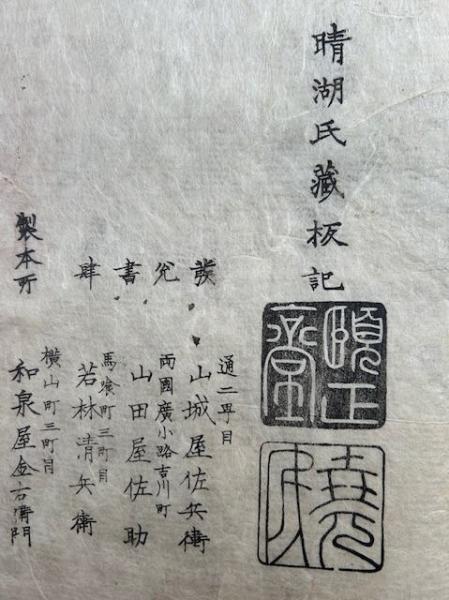 晴湖氏藏板記
頤正
發兌書肆
通二丁目
山城屋佐兵衛
両國廣小路吉川町
山田屋佐助
馬喰町三町目
若林清兵衛
製本所
横山町三町目
和泉屋金右衛門